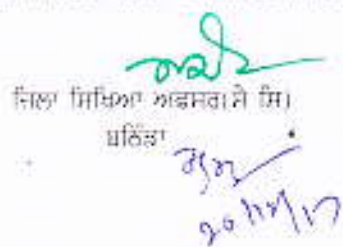 ਜਿਲਾ ਸਿੱਖਿਆ ਅਫਸਰ(ਸੇ ਸਿ)
ਬਠਿੰਡਾ
20/12/17